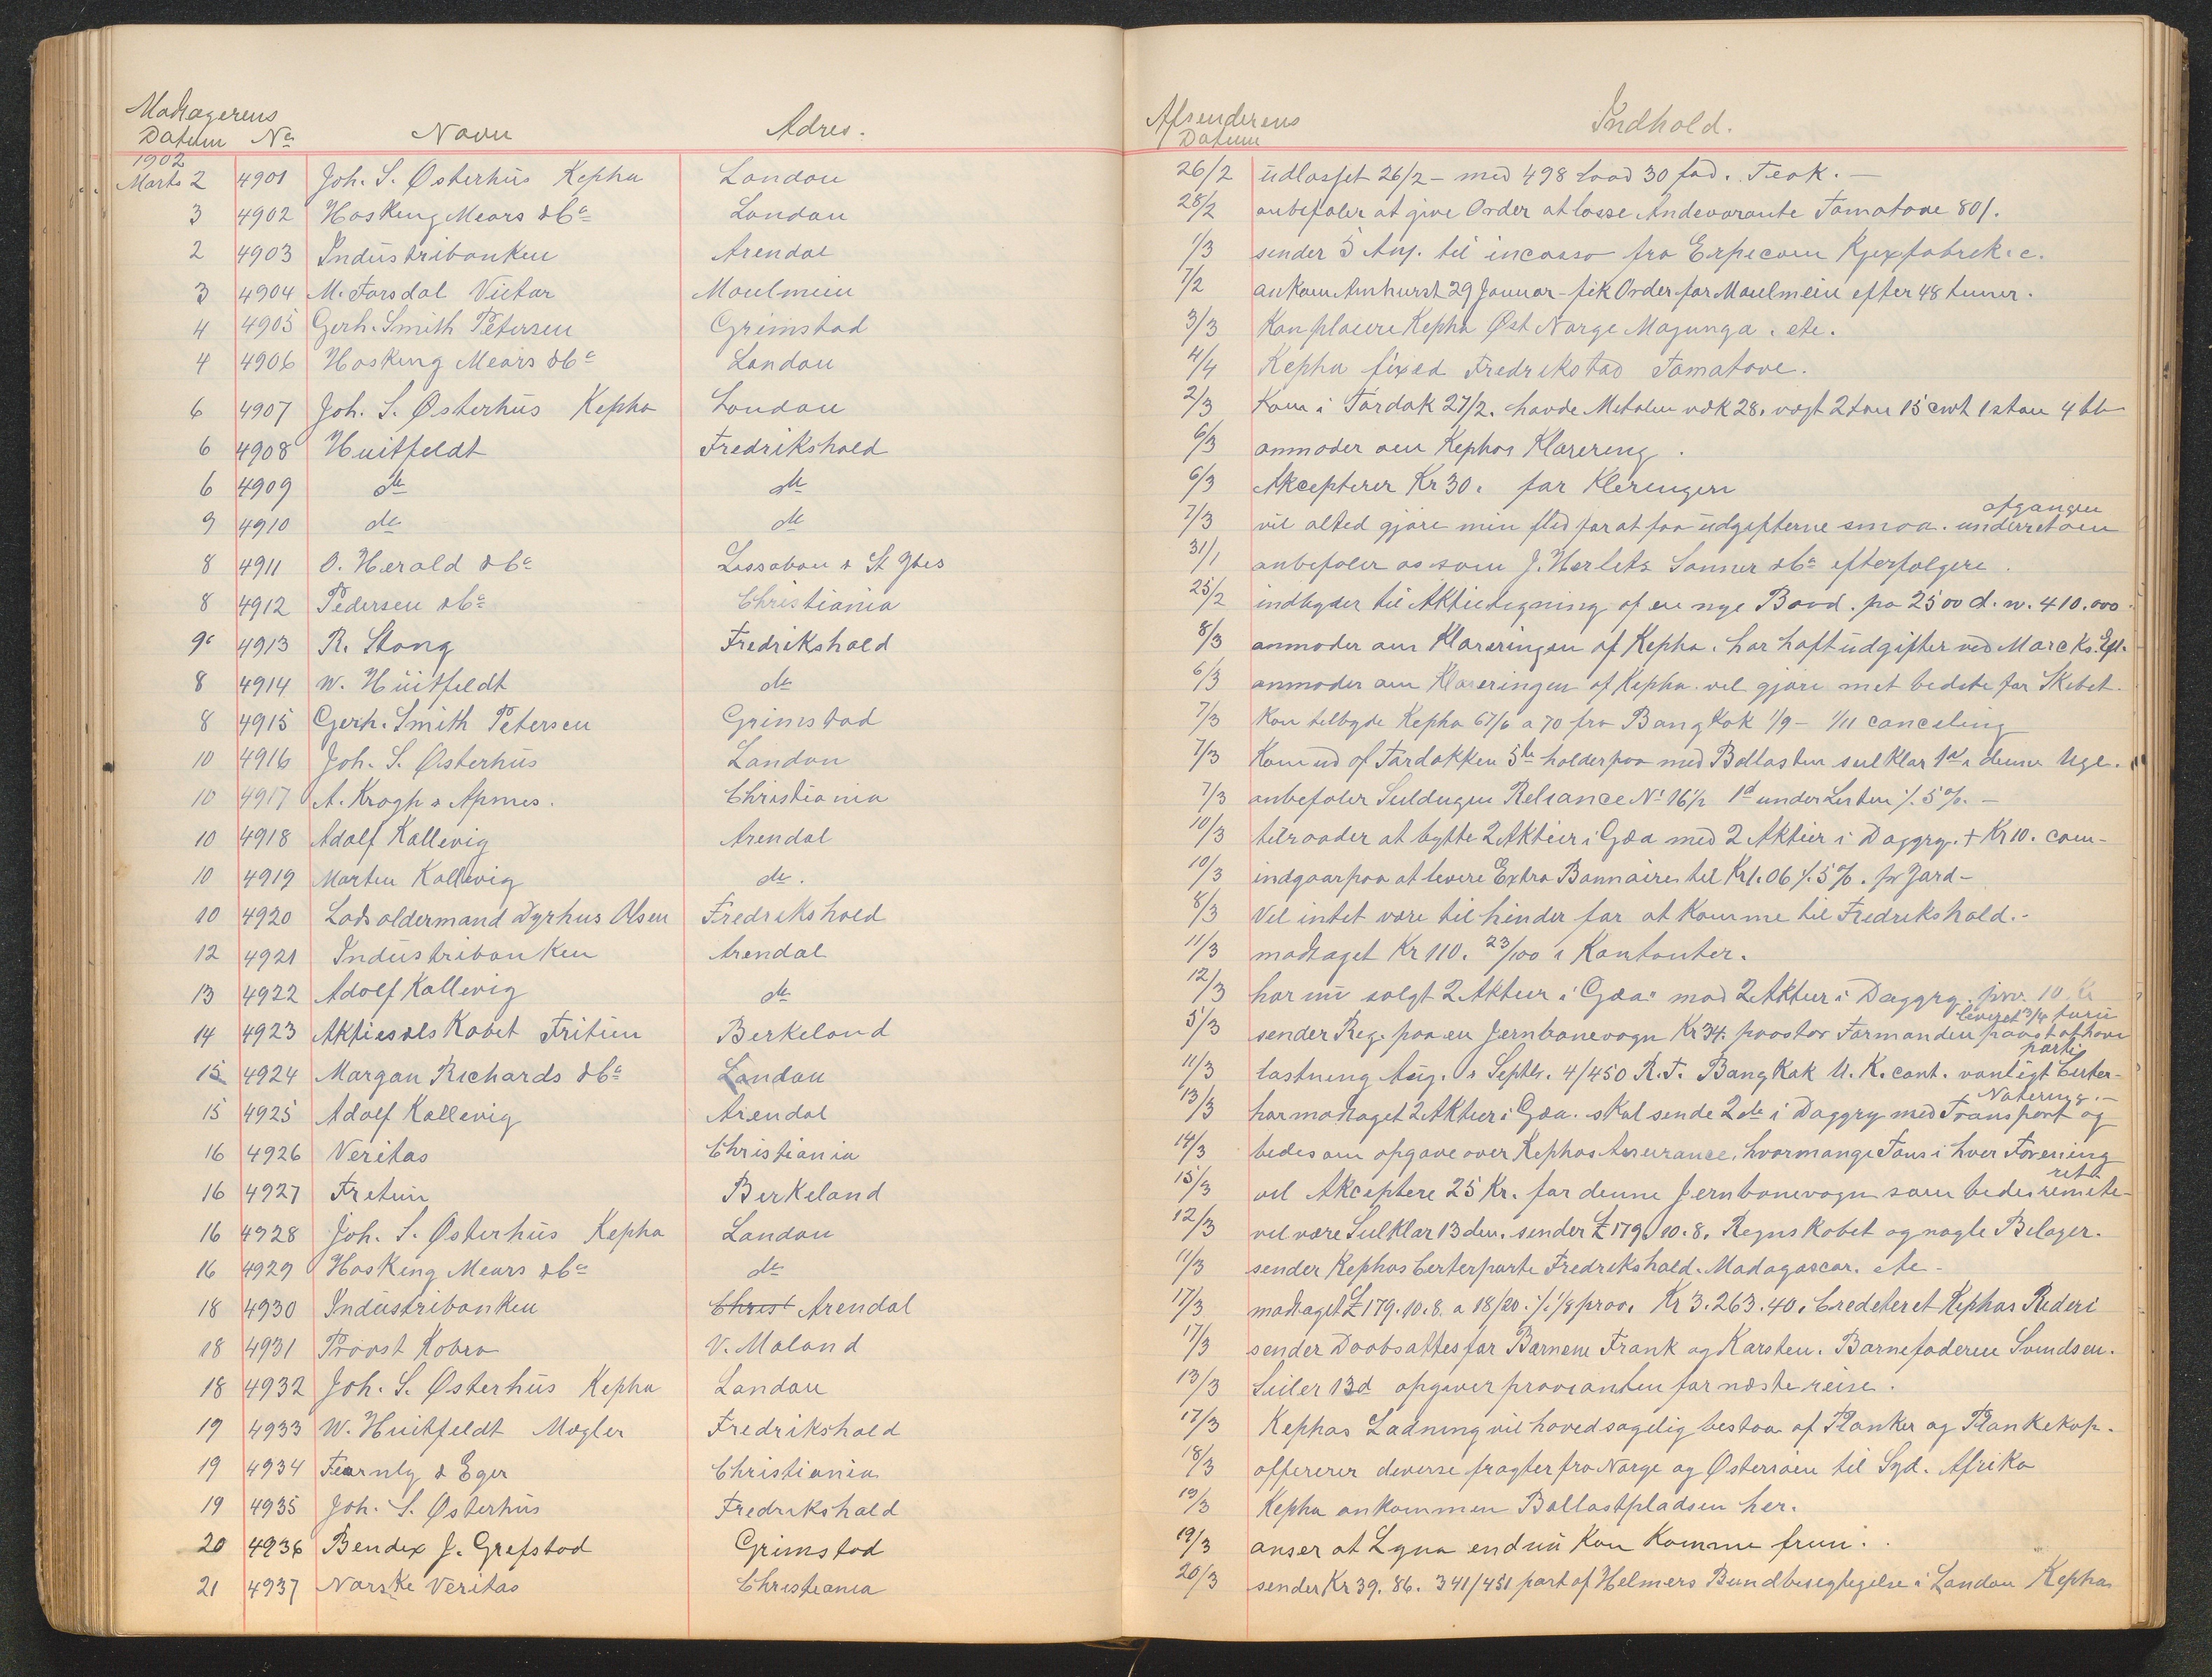 Modtagerens Afsenderens
Datum No Navn Adres. Datum Indhold.
1902
Marts 2 4901 Joh. S. Østerhus Kepha London 26/2 udlosset 26/2 - med 498 Load 30 fad. Teak. -
3 4902 Hosking Mears & Co London 28/2 anbefaler at give Order at losse Andevorante Tamatave 80/.
2 4903 Industribanken Arendal 1/3 sender 5 Anv. til incasso fra Kjexfabrik
3 4904 M. Forsdal Victor Moulmein 7/2 ankom Amhurst 29 Januar - fik Order for Moulmein efter 48 timer.
4 4905 Gerh. Smith Petersen Grimstad 3/3 Kan placere Kepha Øst Norge Majunga. etc.
4 4906 Hosking Mears & Co London 4/4 Kepha fixed Fredrikstad Tamatave.
6 4907 Joh. S. Østerhus Kepha London 2/3 Kom i Tørdok 27/2. havde Metalen væk 28. vægt 2 ton 15 cwt 1 ston 4 lb
6 4908 Huitfeldt Fredrikshald 6/3 anmoder om Kephas Klarering.
6 4909 do do 6/3 Akcepterer Kr 30. for Kleringen
9 4910 do do 7/3 vil altid gjøre min flid for at faa udgifterne smaa. underret om afgangen
8 4911 O. Herold & Co Lissabon & St Ybes 31/1 anbefaler os som J. Sønner & Co efterfølgere.
8 4912 Pedersen & Co Christiania 25/2 indbyder til Aktietegning af en nye Baad. paa 2500 d. w. 410.000.
9. 4913 R. Stang Fredrikshald 8/3 anmoder om Klareringen af Kepha. har haft udgifter ved Marcks. Eft.
8 4914 W. Huitfeldt do 6/3 anmoder om Klareringen af Kepha. vil gjøre mit bedste for Skibet.
8 4915 Gerh. Smith Petersen Grimstad 7/3 Kan tilbyde Kepha 67/6 a 70 fra Bangkok 1/9 - 1/11 canceling
10 4916 Joh. S. Østerhus London 7/3 Kom ud af Tørdokken 5te holder paa med Ballasten seilklar i denne Uge.
10 4917 A. Krogh & Christiania 7/3 anbefaler Seildugen Reliance No 16½ 1d under Listen ./. 5%. -
10 4918 Adolf Kallevig Arendal 10/3 tilraader at bytte 2 Aktier i Gæa med 2 Aktier i Daggry. + Kr 10. com-
10 4919 Morten Kallevig do. 10/3 indgaar paa at levere Extra Bonnaire til Kr 1.06 ./. 5%. pr Jard -
10 4920 Lodsoldermand Dyrhus Olsen Fredrikshald 8/3 Vil intet være til hinder for at komme til Fredrikshald. -
12 4921 Industribanken Arendal 11/3 modtaget Kr 110. 23/100 i Kontanter.
13 4922 Adolf Kallevig do 12/3 har nu solgt 2 Aktier i Gæa mod 2 Aktier i Daggry. prov. 10 Kr
14 4923 Aktieselskabet Fritun Berkeland 5/3 sender Reg. paa en Jernbanevogn Kr 34. paastar Formanden paast at have leveret 3/4 furu
15 4924 Morgan Richards & Co London 11/3 lastning Aug. & Septbr. 4/450 R. T. Bangkok U. K. cont. vanligt Certer- parti
15 4925 Adolf Kallevig Arendal 13/3 har modtaget 2 Aktier i Gæa. skal sende 2 do i Daggry med Transport og Notering. -
16 4926 Veritas Christiania 14/3 bedes om opgave over Kephas Assurance. hvormange Tons i hver Forening
16 4927 Fritun Berkeland 15/3 vil Akceptere 25 Kr. for denne Jernbanevogn som bedes remite- rett
16 4928 Joh. S. Østerhus Kepha London 12/3 vil være Seilklar 13 den. sender £ 179. 10. 8. Regnskabet og nogle Bilager.
16 4929 Hosking Mears & Co do 11/3 sender Kephas Certerparte Fredrikshald. Madagascar. etc -
18 4930 Industribanken Christ Arendal 17/3 modtaget £ 179. 10. 8. a 18/20 ./. 1/8 prov. Kr 3.263.40. Crediteret Kephas Rederi
18 4931 Provst Kobro V. Moland 17/3 sender Daabsattes for Barnene Frank og Karsten. Barnefaderen Svendsen.
18 4932 Joh. S. Østerhus Kepha London 13/3 Seiler 13d opgiver provianten for næste reise.
19 4933 W. Huitfeldt Mægler Fredrikshald 17/3 Kephas Ladning vil hovedsagelig bestaa af Planker og Plankekap.
19 4934 Fearnly & Eger Christiania 18/3 offererer diverse fragter fra Norge og Østersøen til Syd. Afrika
19 4935 Joh. S. Østerhus Fredrikshald 19/3 Kepha ankommen Ballastpladsen her.
20 4936 Bendix J. Grefstad Grimstad 19/3 anser at Lyna endnu kan komme frem.
21 4937 Norske Veritas Christiania 20/3 sender Kr 39. 86. 341/451 part af Helmers Bundbesigtigelse i London Kepha